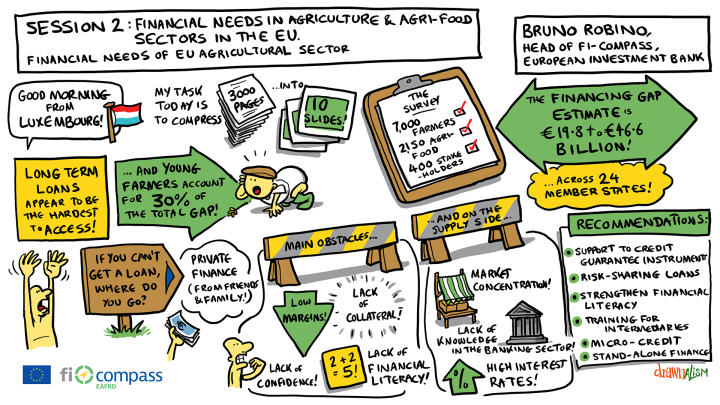 SESSION 2: FINANCIAL NEEDS IN AGRICULTURE & AGRI-FOOD
SECTORS IN THE EU.
FINANCIAL NEEDS OF EU AGRICULTURAL SECTOR
BRUNO ROBINO,
HEAD OF FI-COMPASS,
EUROPEAN INVESTMENT BANK
GOOD MORNING
FROM
LUXEMBOURG!
MY TASK
TODAY IS
TO COMPRESS
3000
PAGES
...INTO
10
SLIDES!
THE
SURVEY
7,000
FARMERS
2150 AGRI-
FOOD
400 STAKE
-HOLDERS
THE FINANCING GAP
ESTIMATE IS
€19.8 to €46.6
BILLION!
...ACROSS 24
MEMBER STATES!
LONG TERM
LOANS
APPEAR TO BE
THE HARDEST
TO ACCESS!
...AND YOUNG
FARMERS ACCOUNT
FOR 30% OF
THE TOTAL GAP!
IF YOU CAN'T
GET A LOAN,
WHERE DO
YOU GO?
PRIVATE
FINANCE
(FROM FRIENDS
& FAMILY!)
€
MAIN OBSTACLES...
LOW
MARGINS!
LACK
OF
COLLATERAL!
LACK OF
CONFIDENCE!
2+2
=5!
LACK OF
FINANCIAL
LITERACY!
...AND ON THE
SUPPLY SIDE...
MARKET
CONCENTRATION!
LACK OF
KNOWLEDGE
IN THE BANKING SECTOR!
%
HIGH INTEREST
RATES!
RECOMMENDATIONS:
SUPPORT TO CREDIT
GUARANTEE INSTRUMENT
RISK-SHARING LOANS
STRENGTHEN FINANCIAL
LITERACY
TRAINING FOR
INTERMEDIARIES
MICRO-CREDIT
STAND-ALONE FINANCE
fi compass
EAFRD
drawnalism